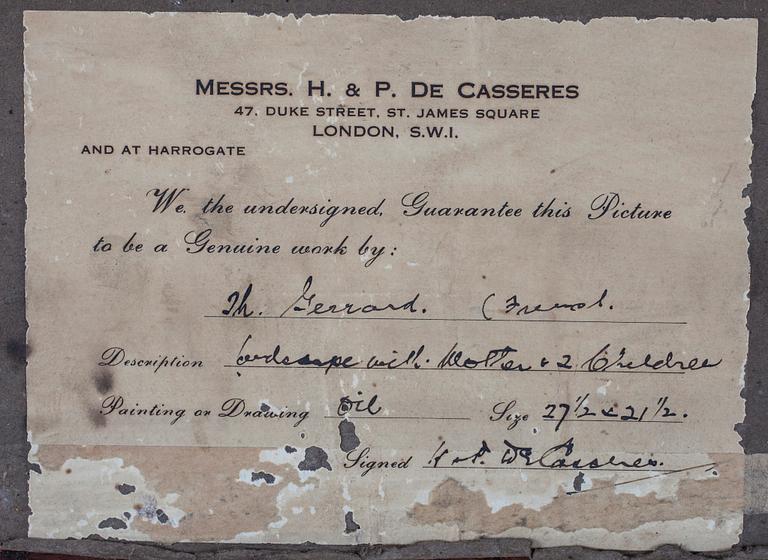 MESSRS. H. & P. DE CASSERES
47, DUKE STREET, ST. JAMES SQUARE
LONDON, S.W.I.
AND AT HARROGATE
We, the undersigned, Guarantee this Picture
to be a Genuine work by:
Th. Gerrard. (French.
Description Landscape with Mother & 2 Children
Painting or Drawing Oil Size 27½ x 21½.
Signed H & P. De Casseres.